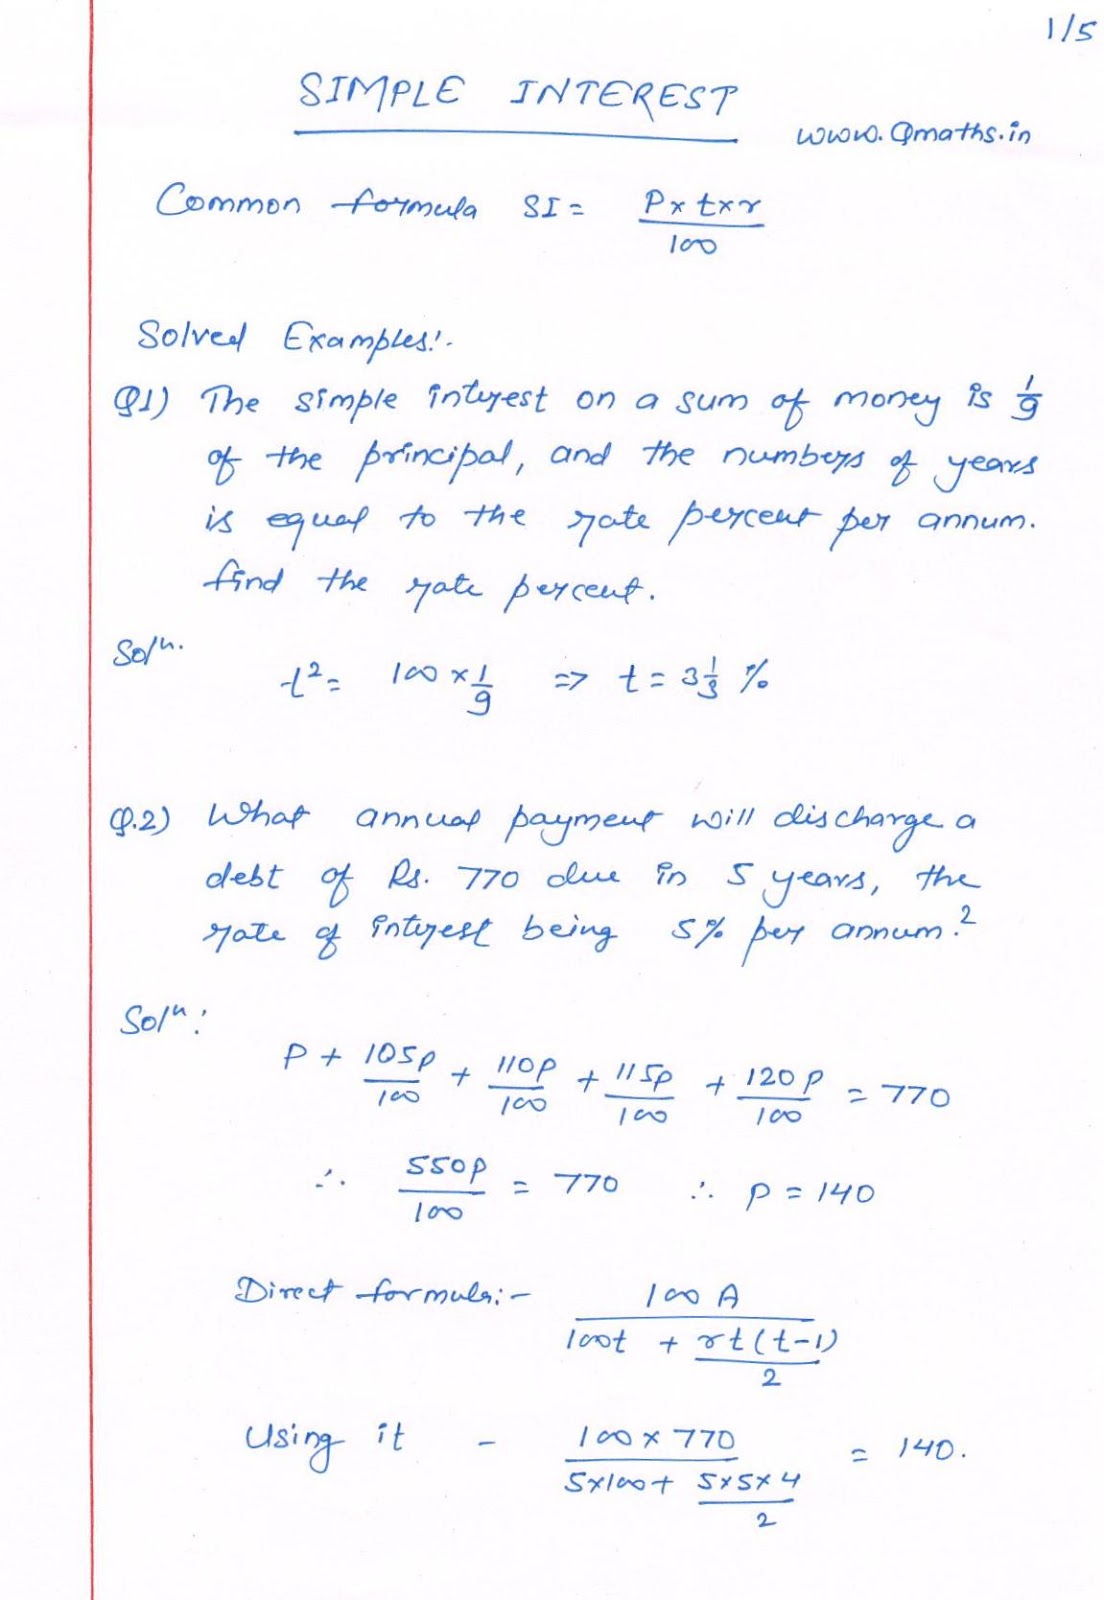 1/5
SIMPLE INTEREST
www.Qmaths.in
Common formula SI = P x t x r / 100
Solved Examples:-
Q1) The simple interest on a sum of money is 1/9
of the principal, and the numbers of years
is equal to the rate percent per annum.
find the rate percent.
Solⁿ.
t² = 100 x 1/9 => t = 3 1/3 %
Q.2) What annual payment will discharge a
debt of Rs. 770 due in 5 years, the
rate of interest being 5% per annum.?
Solⁿ:
P + 105P/100 + 110P/100 + 115P/100 + 120P/100 = 770
∴ 550P/100 = 770 ∴ P = 140
Direct formula:- 100A / (100t + rt(t-1)/2)
Using it - 100 x 770 / (5x100 + 5x5x4/2) = 140.